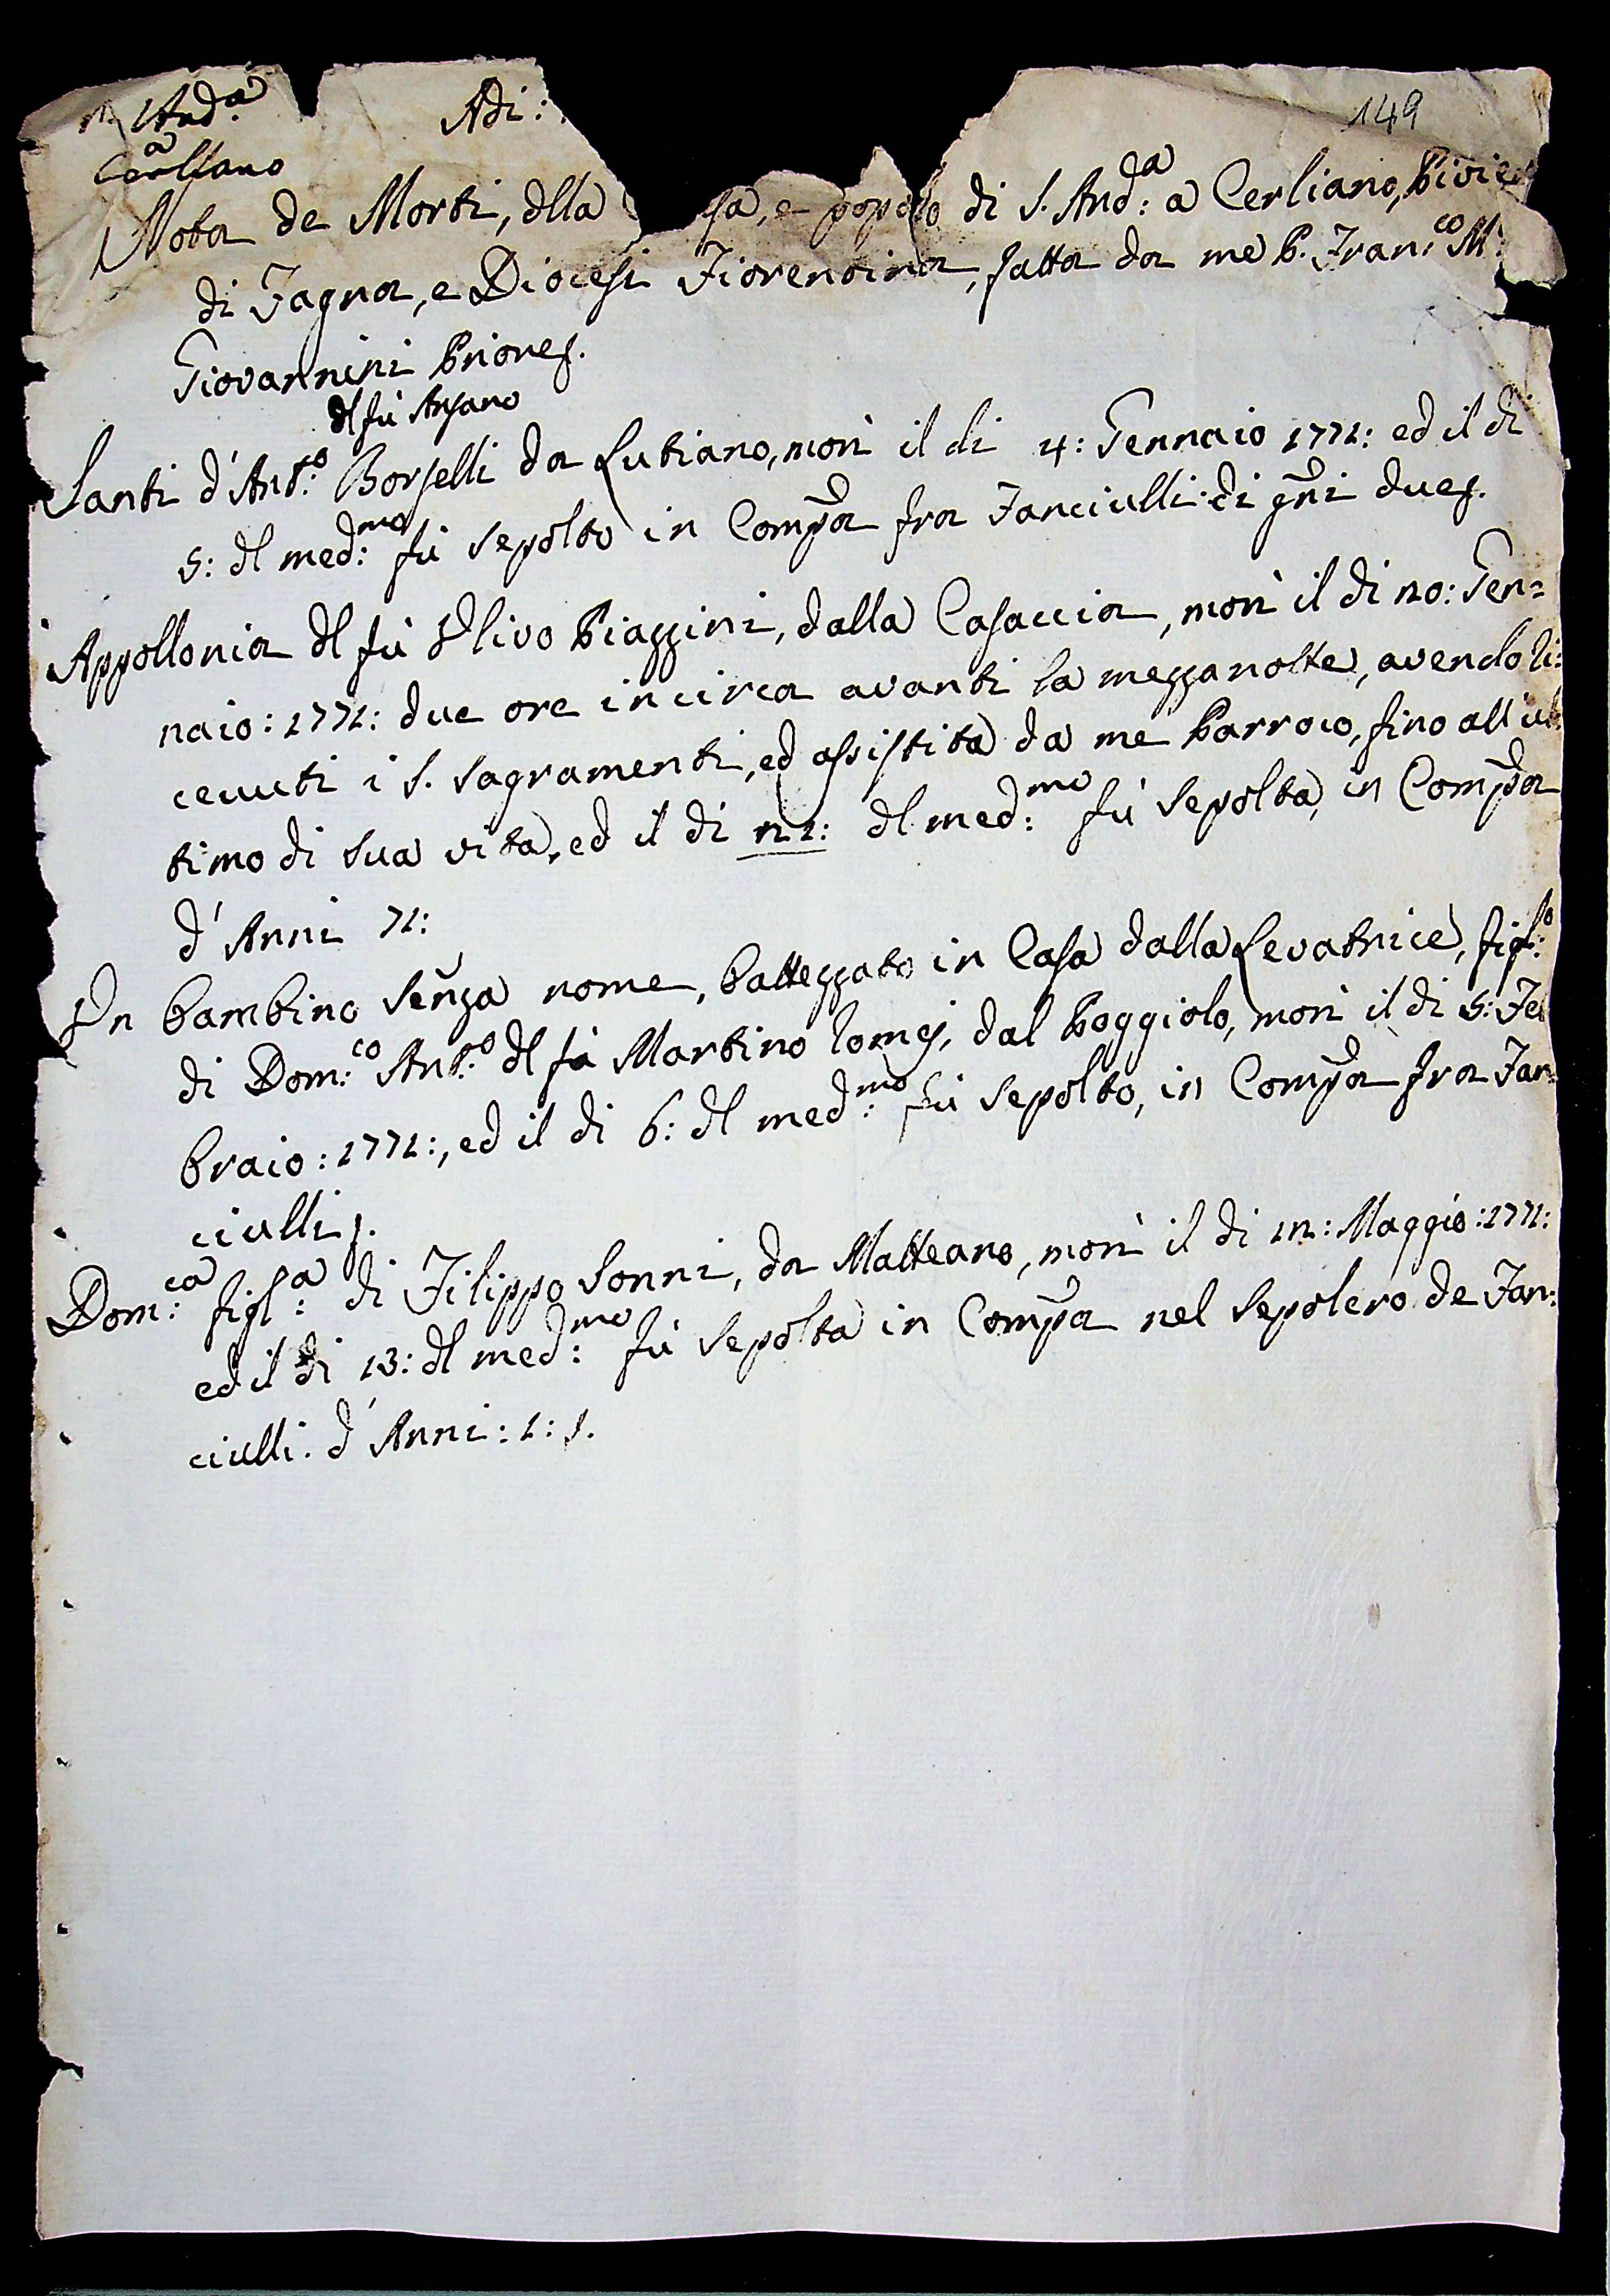 And:a Adi: 149
a Cerliano
Nota de Morti, dlla sa, e popolo di S. And:a a Cerliano, Pivie
di Fagna, e Diocesi Fiorentina, fatta da me P. Fran:co M:
Giovannini Priore.
dl fù Ansano
Santi d'Ant:o Borselli da Lutiano, morì il di 4: Gennaio 1771: ed il di
5: dl med:mo fù sepolto in Compa fra Fanciulli di gni due.
Appollonia dl fù Ulivo Piazzini, dalla Casaccia, morì il di 20: Gen=
naio: 1771: due ore incirca avanti la mezzanotte, avendo li=
cevuti i S. Sagramenti, ed assistita da me Parroco, fino all'ul=
timo di sua vita, ed il di 21: dl med:mo fù sepolta, in Compa
d'Anni 71:
Un bambino senza nome, battezzato in Casa dalla Levatrice, figl:o
di Dom:co Ant:o dl fù Martino Tomej, dal Poggiolo, morì il di 5: Fe
braio: 1771:, ed il di 6: dl med:mo fù sepolto, in Compa fra Fan=
ciulli.
Dom:ca figl:a di Filippo Sonni, da Matteano, morì il di 12: Maggio: 1771:
ed il di 13: dl med:mo fù sepolta in Compa nel sepolcro de Fan:
ciulli. d'Anni: 1: